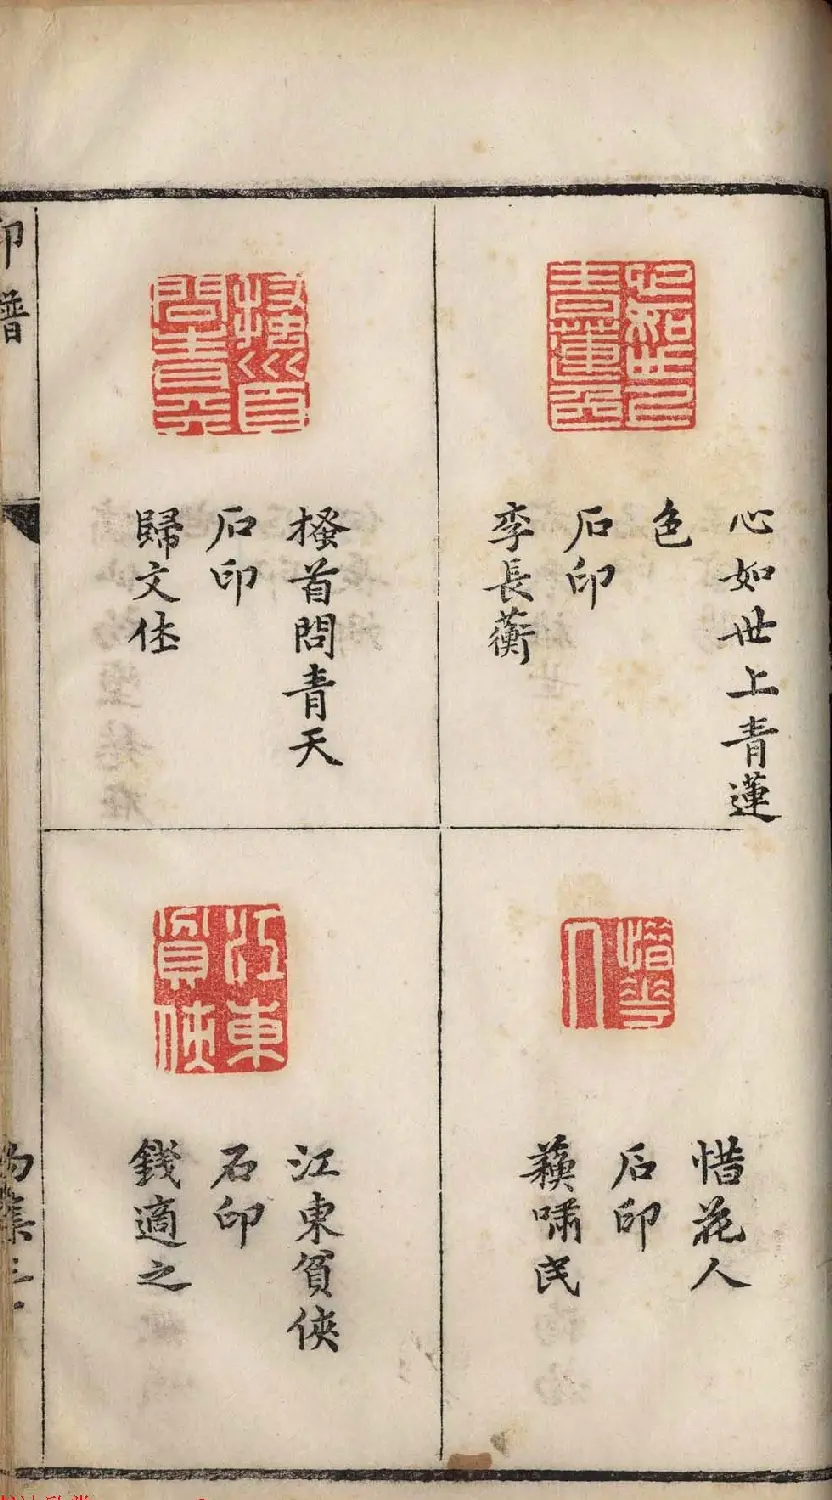 心如世上青蓮
色
石印
李長蘅
搔首問青天
石印
歸文休
惜花人
石印
蘇嘯民
江東貧俠
石印
錢適之
印譜